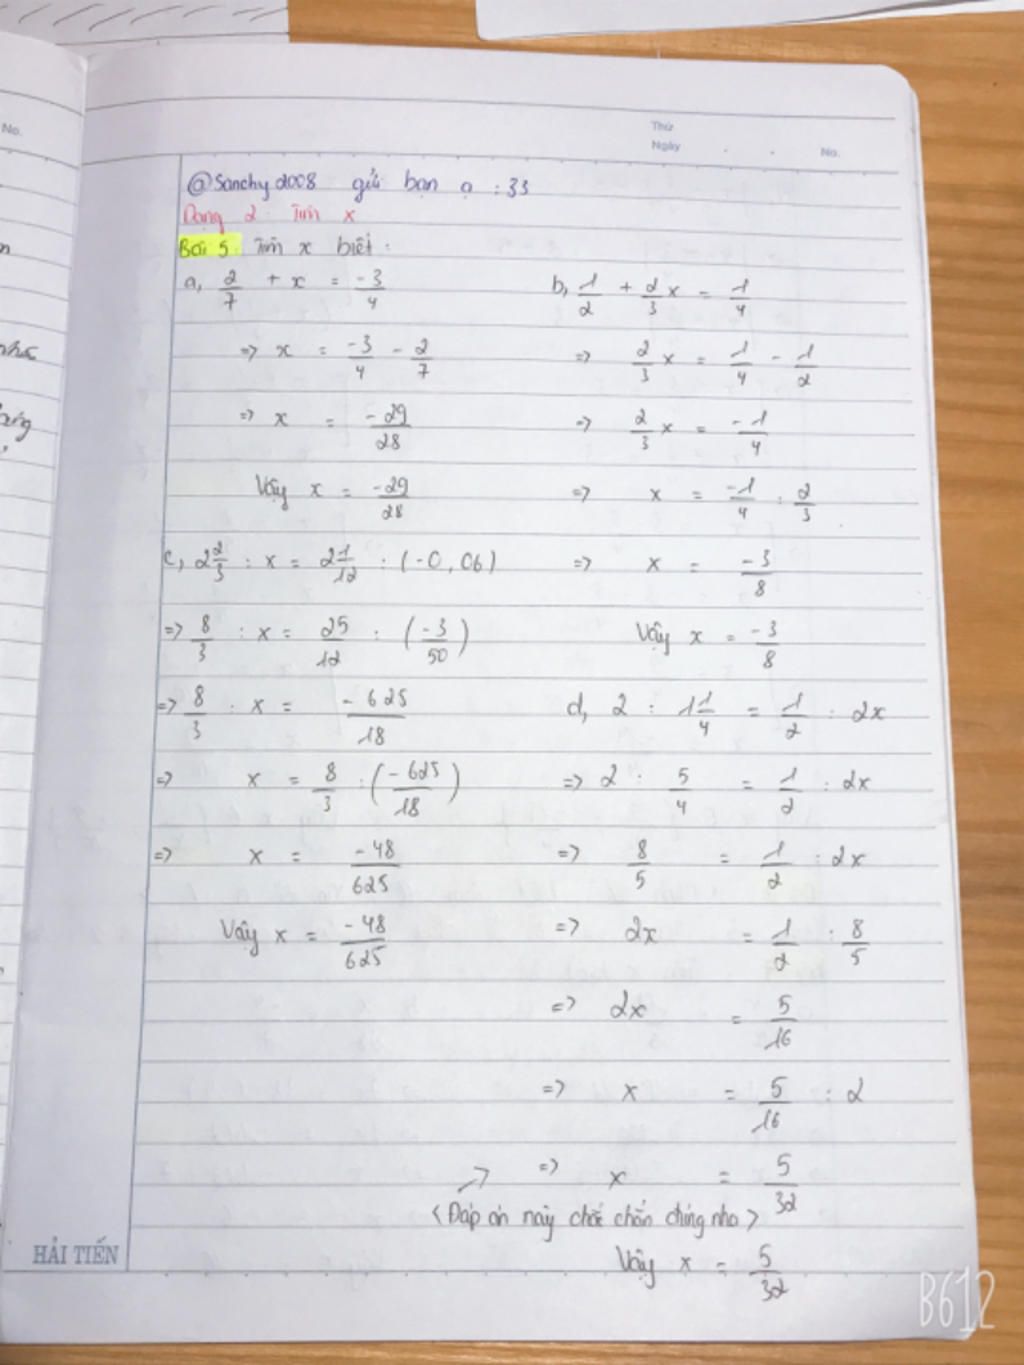 No.
Thứ
Ngày
No.
@Sanchy2008 gửi bạn ạ :33
Dạng 2: Tìm x
Bài 5: Tìm x biết:
a, 2/7 + x = -3/4
=> x = -3/4 - 2/7
=> x = -29/28
Vậy x = -29/28
b, 1/2 + 2/3 x = 1/4
=> 2/3 x = 1/4 - 1/2
=> 2/3 x = -1/4
=> x = -1/4 : 2/3
=> x = -3/8
Vậy x = -3/8
c, 2 2/3 : x = 2 1/12 : (-0,06)
=> 8/3 : x = 25/12 : (-3/50)
=> 8/3 : x = -625/18
=> x = 8/3 : (-625/18)
=> x = -48/625
Vậy x = -48/625
d, 2 : 1 1/4 = 1/2 : 2x
=> 2 : 5/4 = 1/2 : 2x
=> 8/5 = 1/2 : 2x
=> 2x = 1/2 : 8/5
=> 2x = 5/16
=> x = 5/16 : 2
=> x = 5/32
<Đáp án này chắc chắn đúng nha>
Vậy x = 5/32
HẢI TIẾN
B612